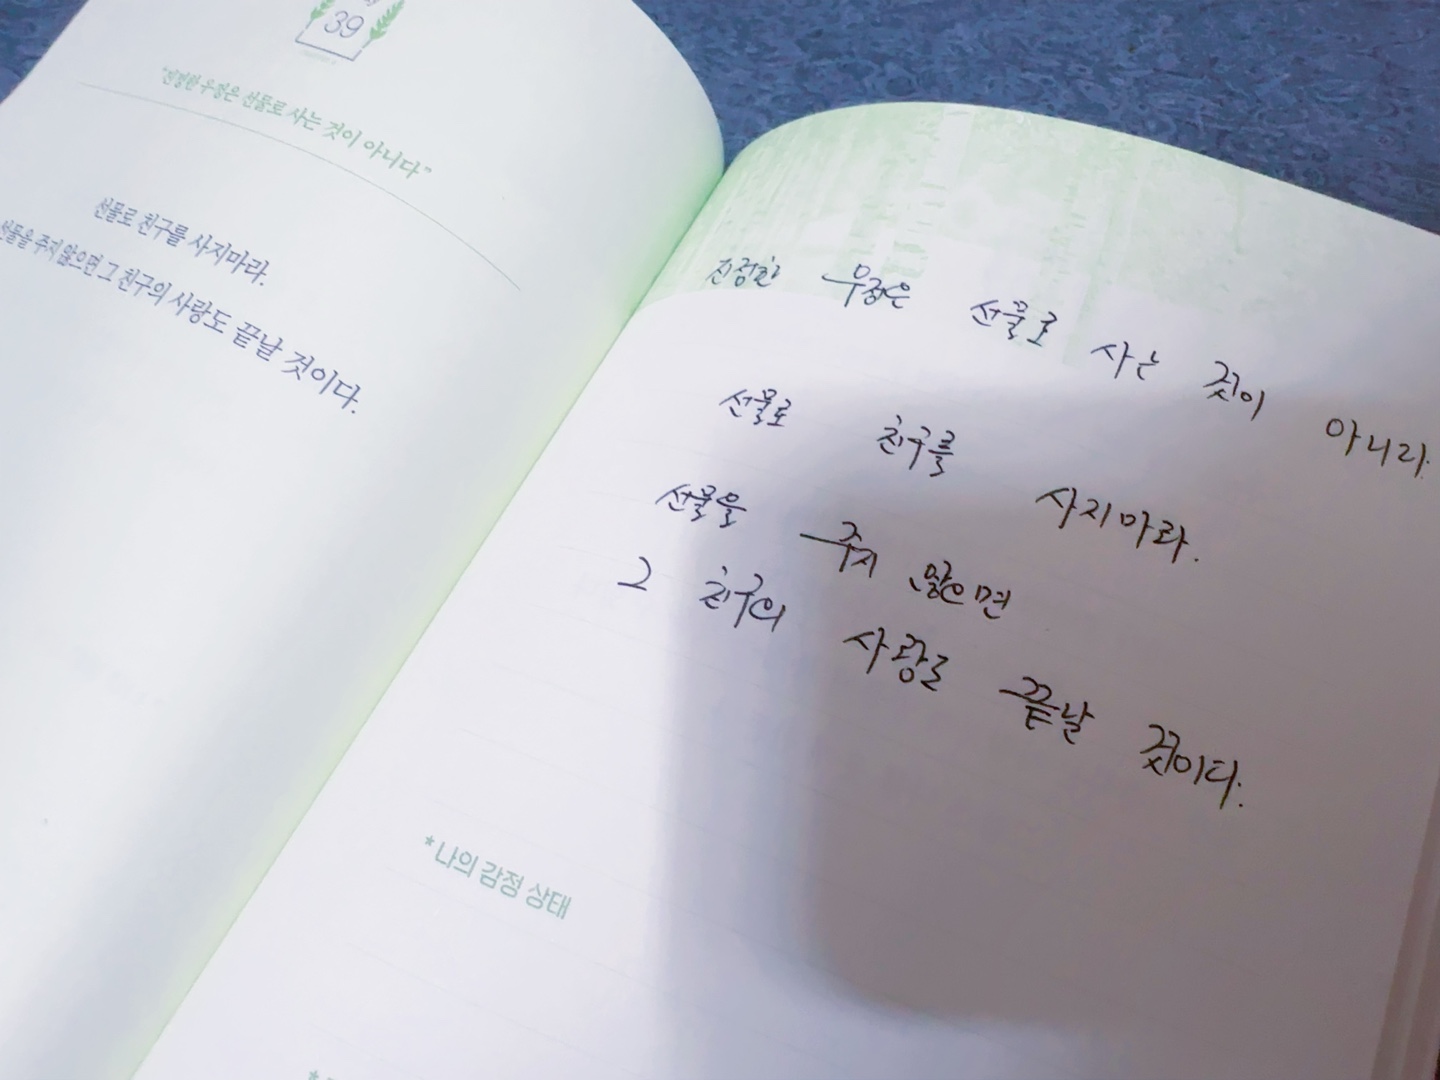 39
"진정한 우정은 선물로 사는 것이 아니다"
선물로 친구를 사지마라.
선물을 주지 않으면 그 친구의 사랑도 끝날 것이다.
진정한 우정은 선물로 사는 것이 아니다.
선물로 친구를 사지마라.
선물을 주지 않으면
그 친구의 사랑도 끝날 것이다.
*나의 감정 상태